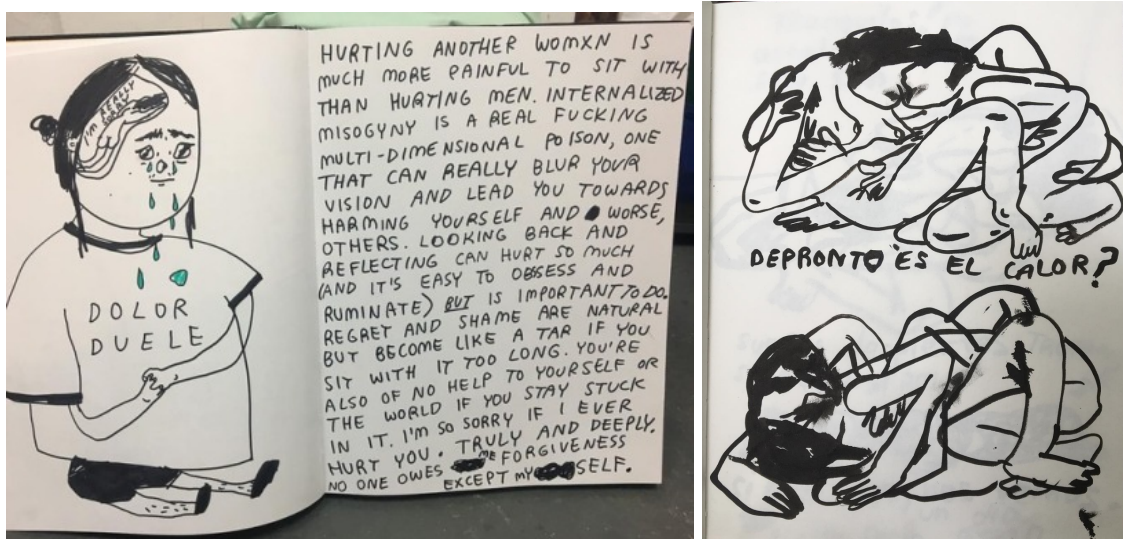 I'M REALLY SORRY
DOLOR
DUELE
HURTING ANOTHER WOMXN IS
MUCH MORE PAINFUL TO SIT WITH
THAN HURTING MEN. INTERNALIZED
MISOGYNY IS A REAL FUCKING
MULTI-DIMENSIONAL POISON, ONE
THAT CAN REALLY BLUR YOUR
VISION AND LEAD YOU TOWARDS
HARMING YOURSELF AND WORSE,
OTHERS. LOOKING BACK AND
REFLECTING CAN HURT SO MUCH
(AND IT'S EASY TO OBSESS AND
RUMINATE) BUT IS IMPORTANT TO DO.
REGRET AND SHAME ARE NATURAL
BUT BECOME LIKE A TAR IF YOU
SIT WITH IT TOO LONG. YOU'RE
ALSO OF NO HELP TO YOURSELF OR
THE WORLD IF YOU STAY STUCK
IN IT. I'M SO SORRY IF I EVER
HURT YOU. TRULY AND DEEPLY.
NO ONE OWES ME FORGIVENESS
EXCEPT MYSELF.
DEPRONTO ES EL CALOR?